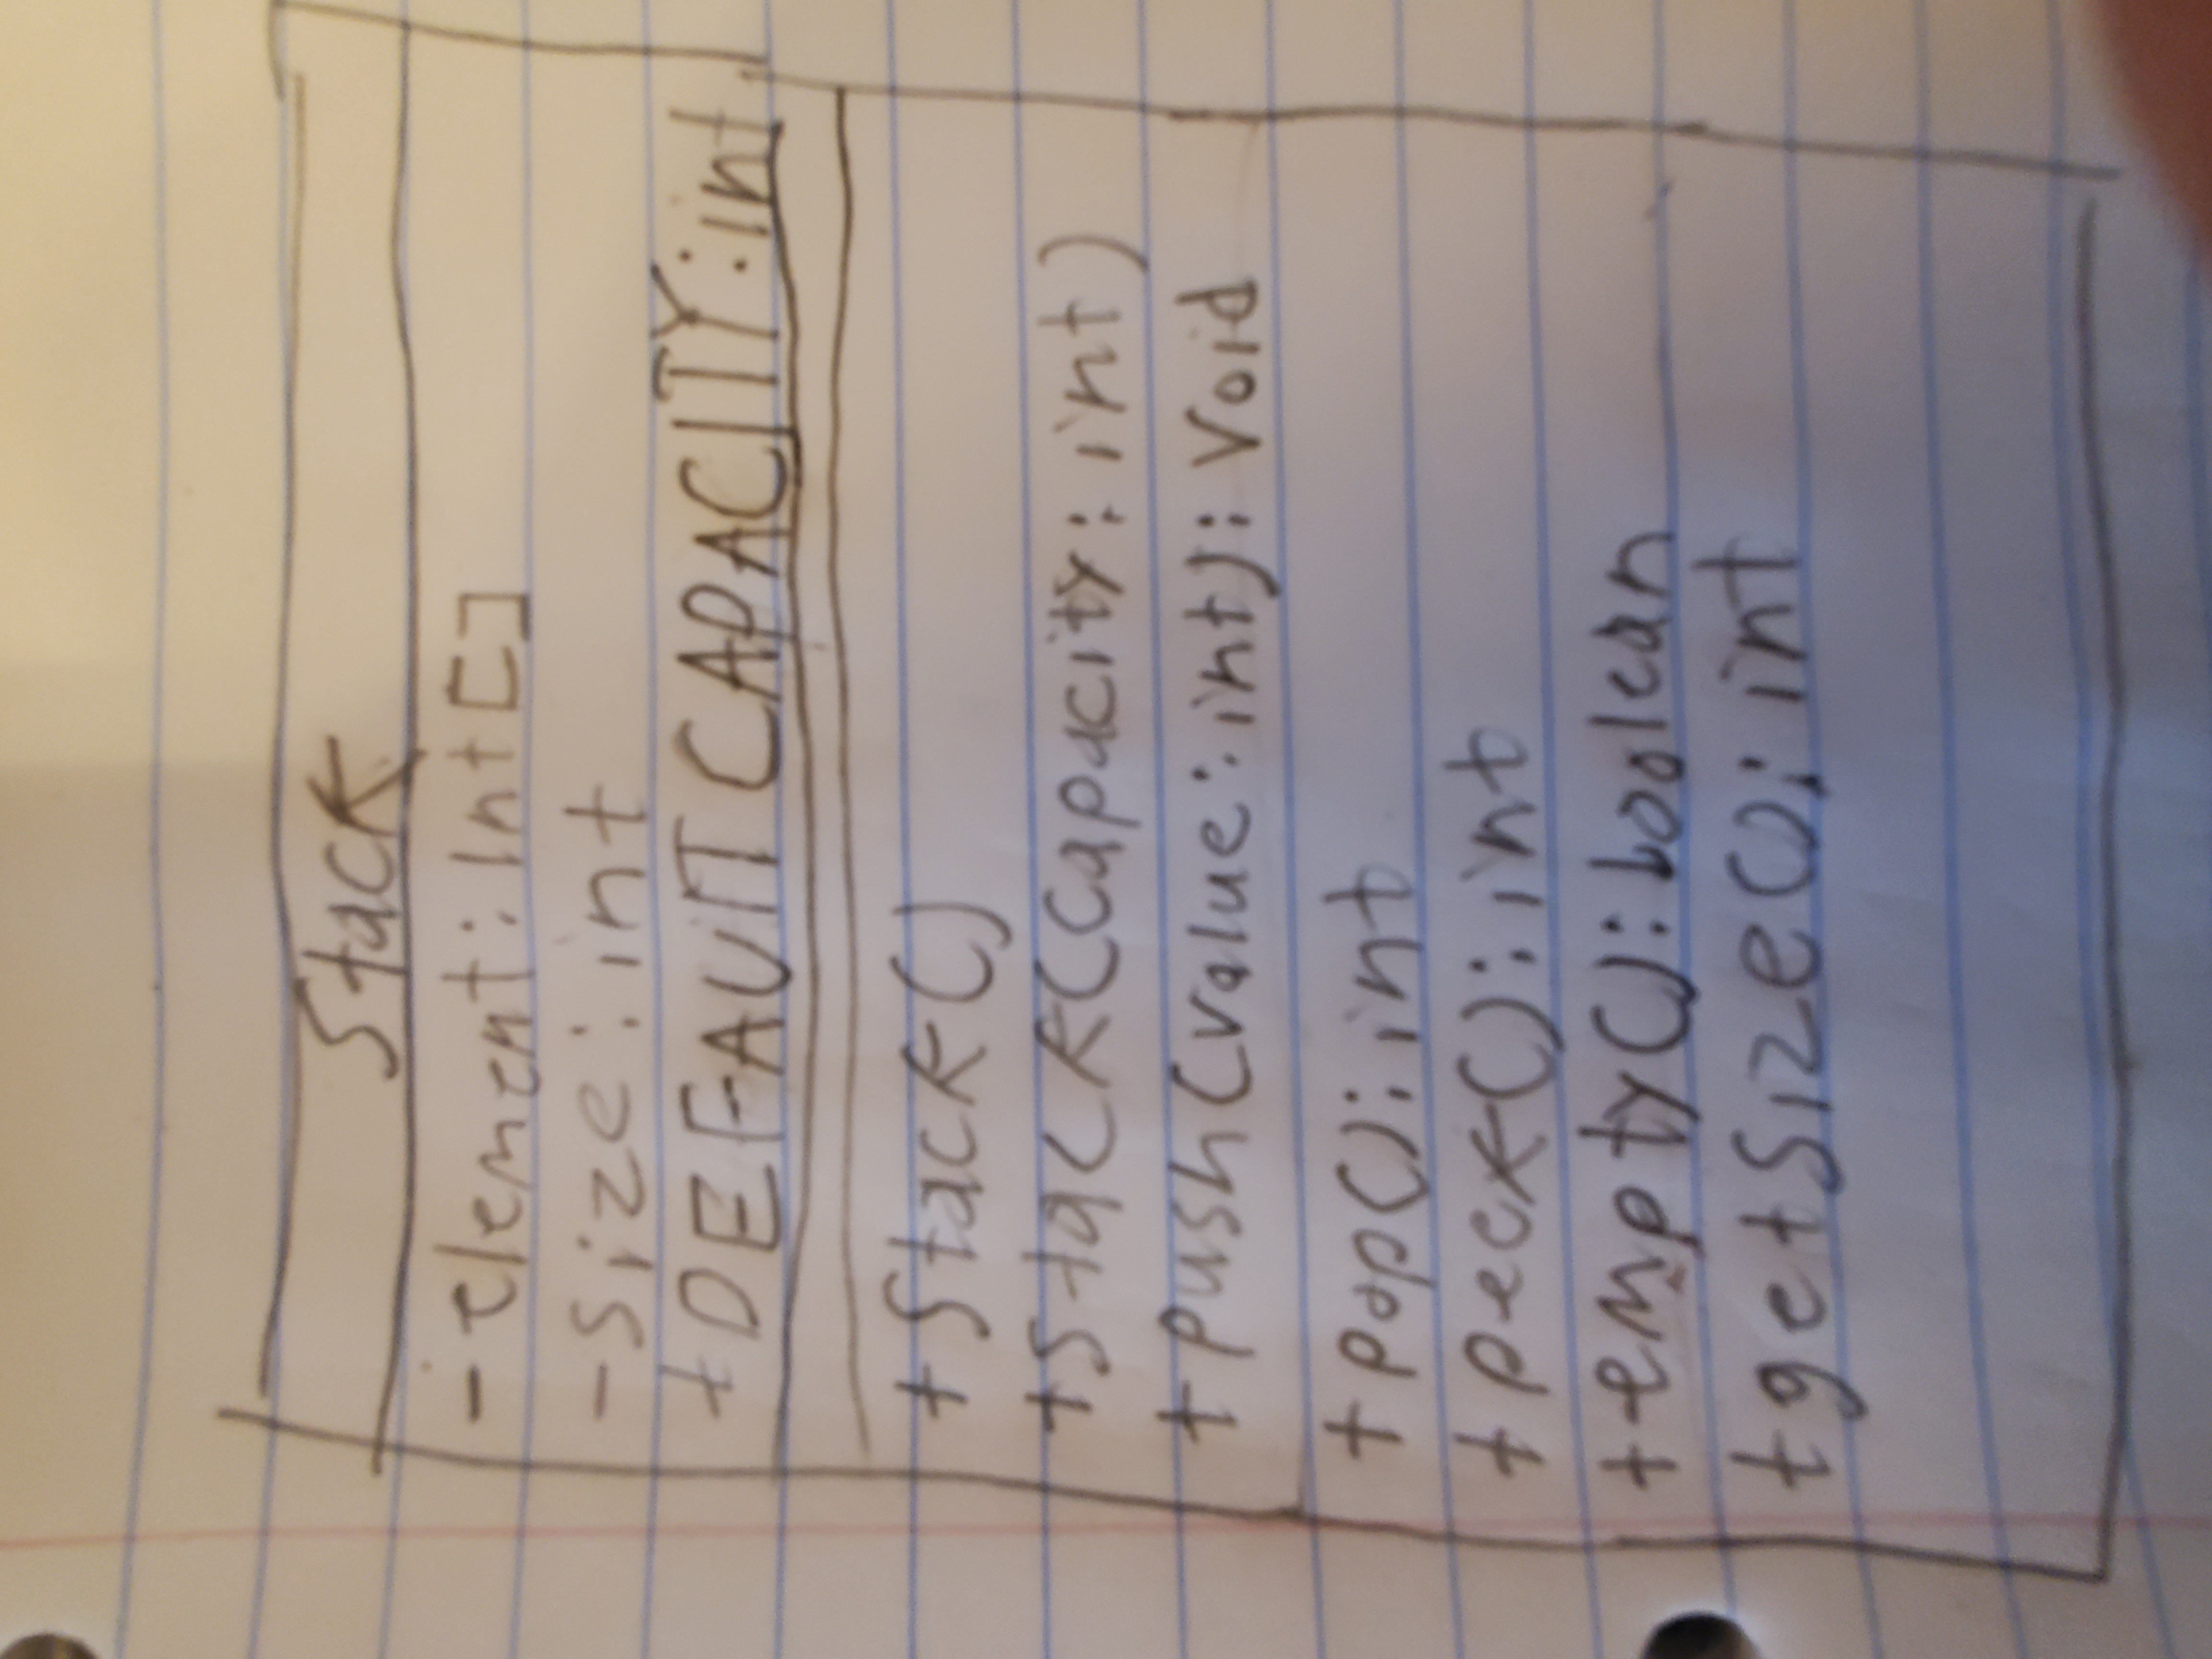 Stack
- element: Int[]
- size: int
+ DEFAULT CAPACITY: int
+ Stack()
+ Stack(Capacity: int)
+ push(value: int): Void
+ pop(): int
+ peek(): int
+ empty(): boolean
+ getSize(): int